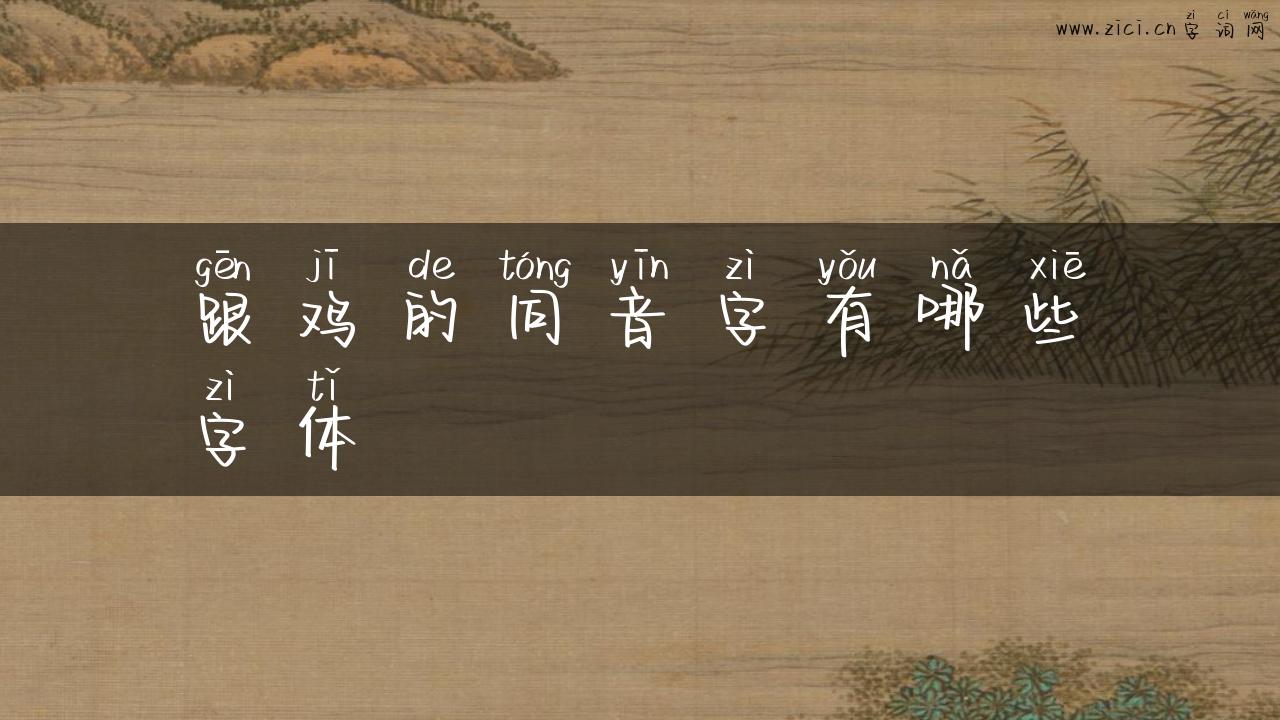 www.zici.cn 字词网
zì cí wǎng
gēn jī de tóng yīn zì yǒu nǎ xiē
跟鸡的同音字有哪些
zì tǐ
字体